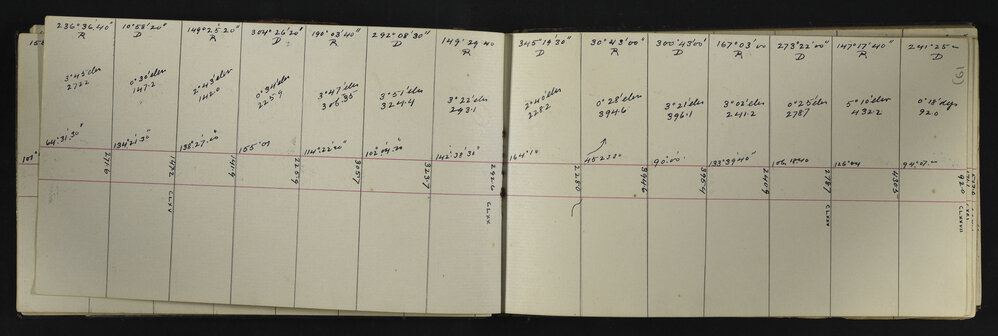 236° 36.40" R
3°45' elev
272.2
64°.31'.30"
271.6
10°58'20" D
0°30' elev
147.2
134°21'.30"
147.2
CLXV
149°25'20" R
2°43' elev
142.0
138°.27'.00"
141.9
304°26'20" D
0°34' elev
225.9
155°.09
225.9
190°.03'40" R
3°47' elev
306.35
114°22'20"
305.7
292°08'30" D
3°51' elev
324.4
102°.04'.30
323.7
149°.29.40 R
3°22' elev
293.1
142°.38'.30"
292.6
CLXX
345°19'30" D
2°40' elev
228.2
164°.10
228.0
30°43'00" R
0°28' elev
394.6
394.6
300°43'00' D
3°21' elev
396.1
90°.00'
395.4
167°03'.00 R
3°02' elev
241.2
133°39'40"
240.9
273°22'00" D
0°25' elev
278.7
106.18.40
278.7
CLXXV
147°17'40" R
5°10' elev
432.2
126°.04
430.5
241°.25 D
0°18' dep
92.0
94°.07
92.0
CLXXVII
(61